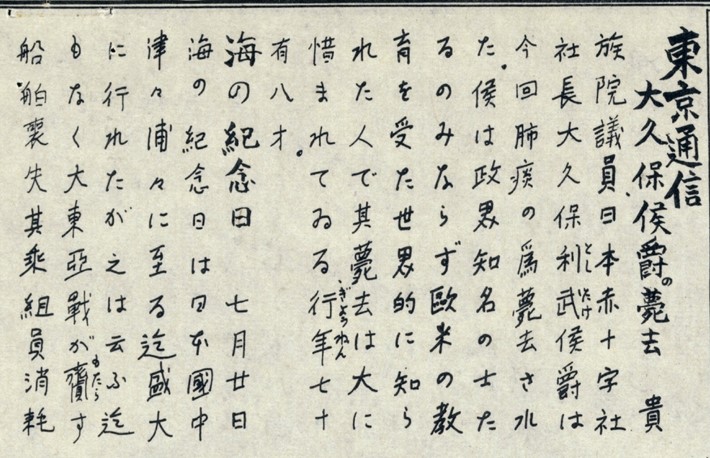 東京通信
大久保侯爵の薨去　貴
族院議員、日本赤十字社
社長大久保利武侯爵は
今回肺痰の為薨去され
た。侯は政界知名の士た
るのみならず欧米の教
育を受た世界的に知ら
れた人で其薨去は大に
惜まれてゐる行年七十
有八才。
海の紀念日　七月廿日
海の紀念日は日本國中
津々浦々に至る迄盛大
に行れたが之は云ふ迄
もなく大東亞戰が齎す
船舶喪失其乘組員消耗